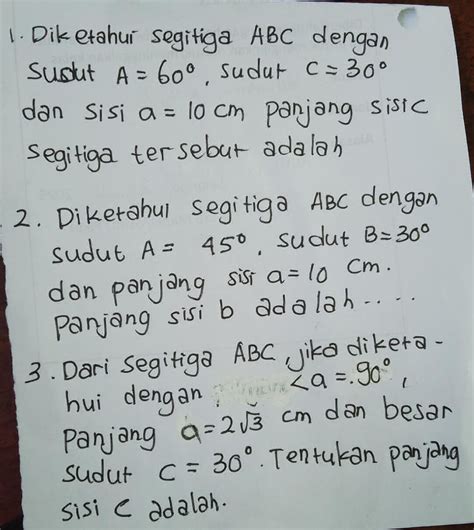 1. Diketahui segitiga ABC dengan
sudut A = 60°, sudut C = 30°
dan sisi a = 10 cm panjang sisi c
segitiga tersebut adalah
2. Diketahui segitiga ABC dengan
sudut A = 45°, sudut B = 30°
dan panjang sisi a = 10 cm.
panjang sisi b adalah ....
3. Dari segitiga ABC, jika diketa-
hui dengan <a = 90°,
panjang a = 2√3 cm dan besar
sudut C = 30°. Tentukan panjang
sisi c adalah.